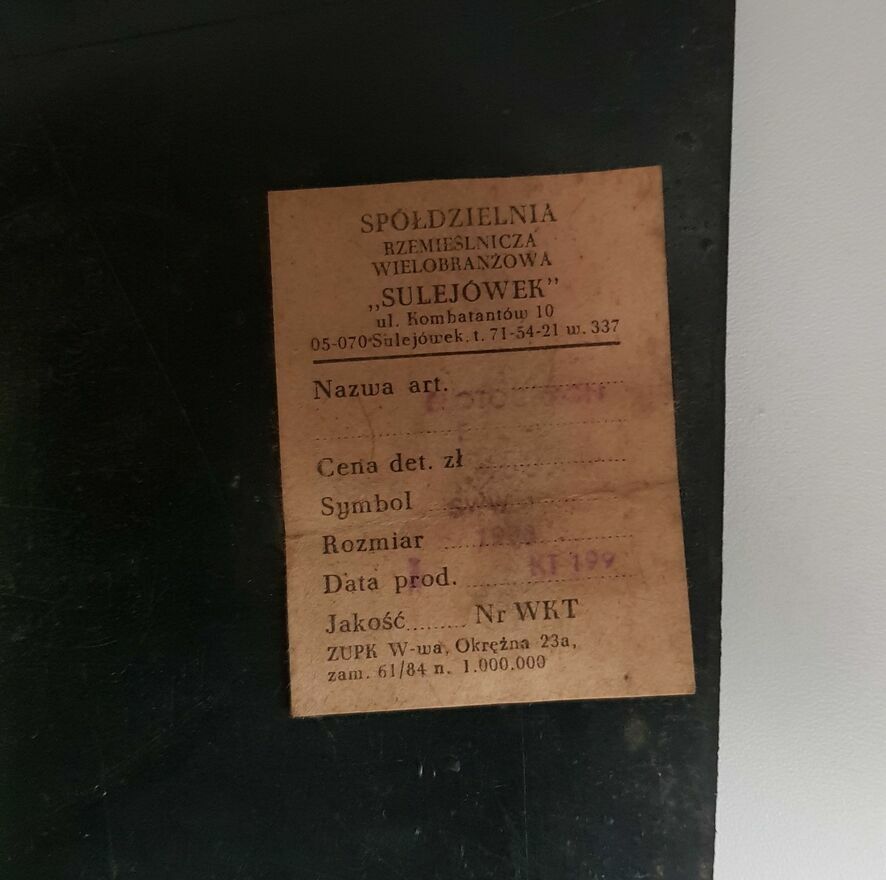 SPÓŁDZIELNIA
RZEMIEŚLNICZA
WIELOBRANŻOWA
„SULEJÓWEK”
ul. Kombatantów 10
05-070 Sulejówek, t. 71-54-21 w. 337
Nazwa art.
Cena det. zł
Symbol
Rozmiar
KT 199
Data prod.
Jakość......... Nr WKT
ZUPK W-wa, Okrężna 23a,
zam. 61/84 n. 1.000.000